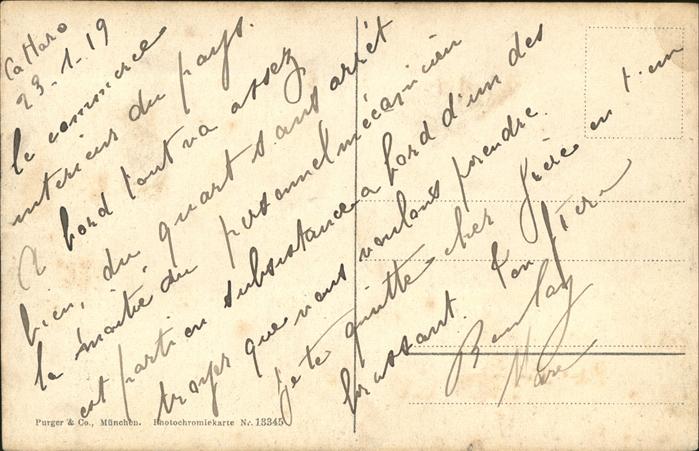 Cattaro
23-1-19
le commerce
interieur du pays.
A bord tout va assez
bien, du quart sans arrêt
la moitié du personnel mécanicien
est parti en subsistance a bord d'un des
troyer que nous voulons prendre.
Je te quitte cher frère en t'em
brassant. Ton frère
Purger & Co., München. Photochromiekarte Nr. 13345